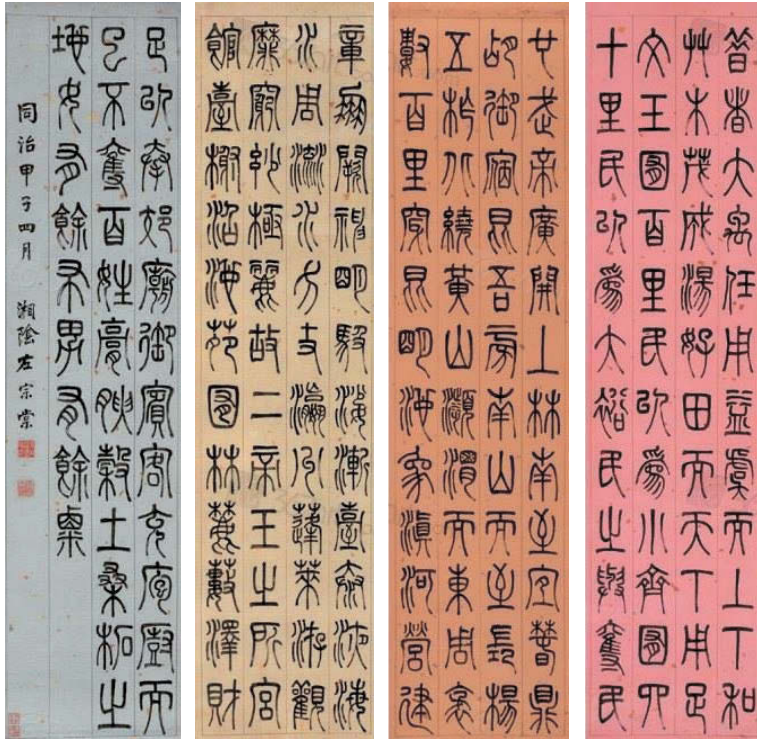 昔者大禹任用益虞而上下和
艸木茂成湯好田而天下用足
文王囿百里民以爲小齊囿四
十里民以爲大裕民之與奪民
也武帝廣開上林南至宜春鼎
胡御宿昆吾旁南山而至長楊
五柞北繞黃山瀕渭而東周袤
數百里穿昆明池象滇河營建
章鳳闕神明馺娑漸臺泰液海
水周流水方丈瀛洲蓬萊游觀
靡窮妙極麗故二帝王之所宮
館臺榭沼池苑囿林麓藪澤財
足以奉郊廟御賓客充庖廚而
已不奪百姓膏腴穀土桑柘之
地女有餘布男有餘粟
同治甲子四月 湘陰左宗棠